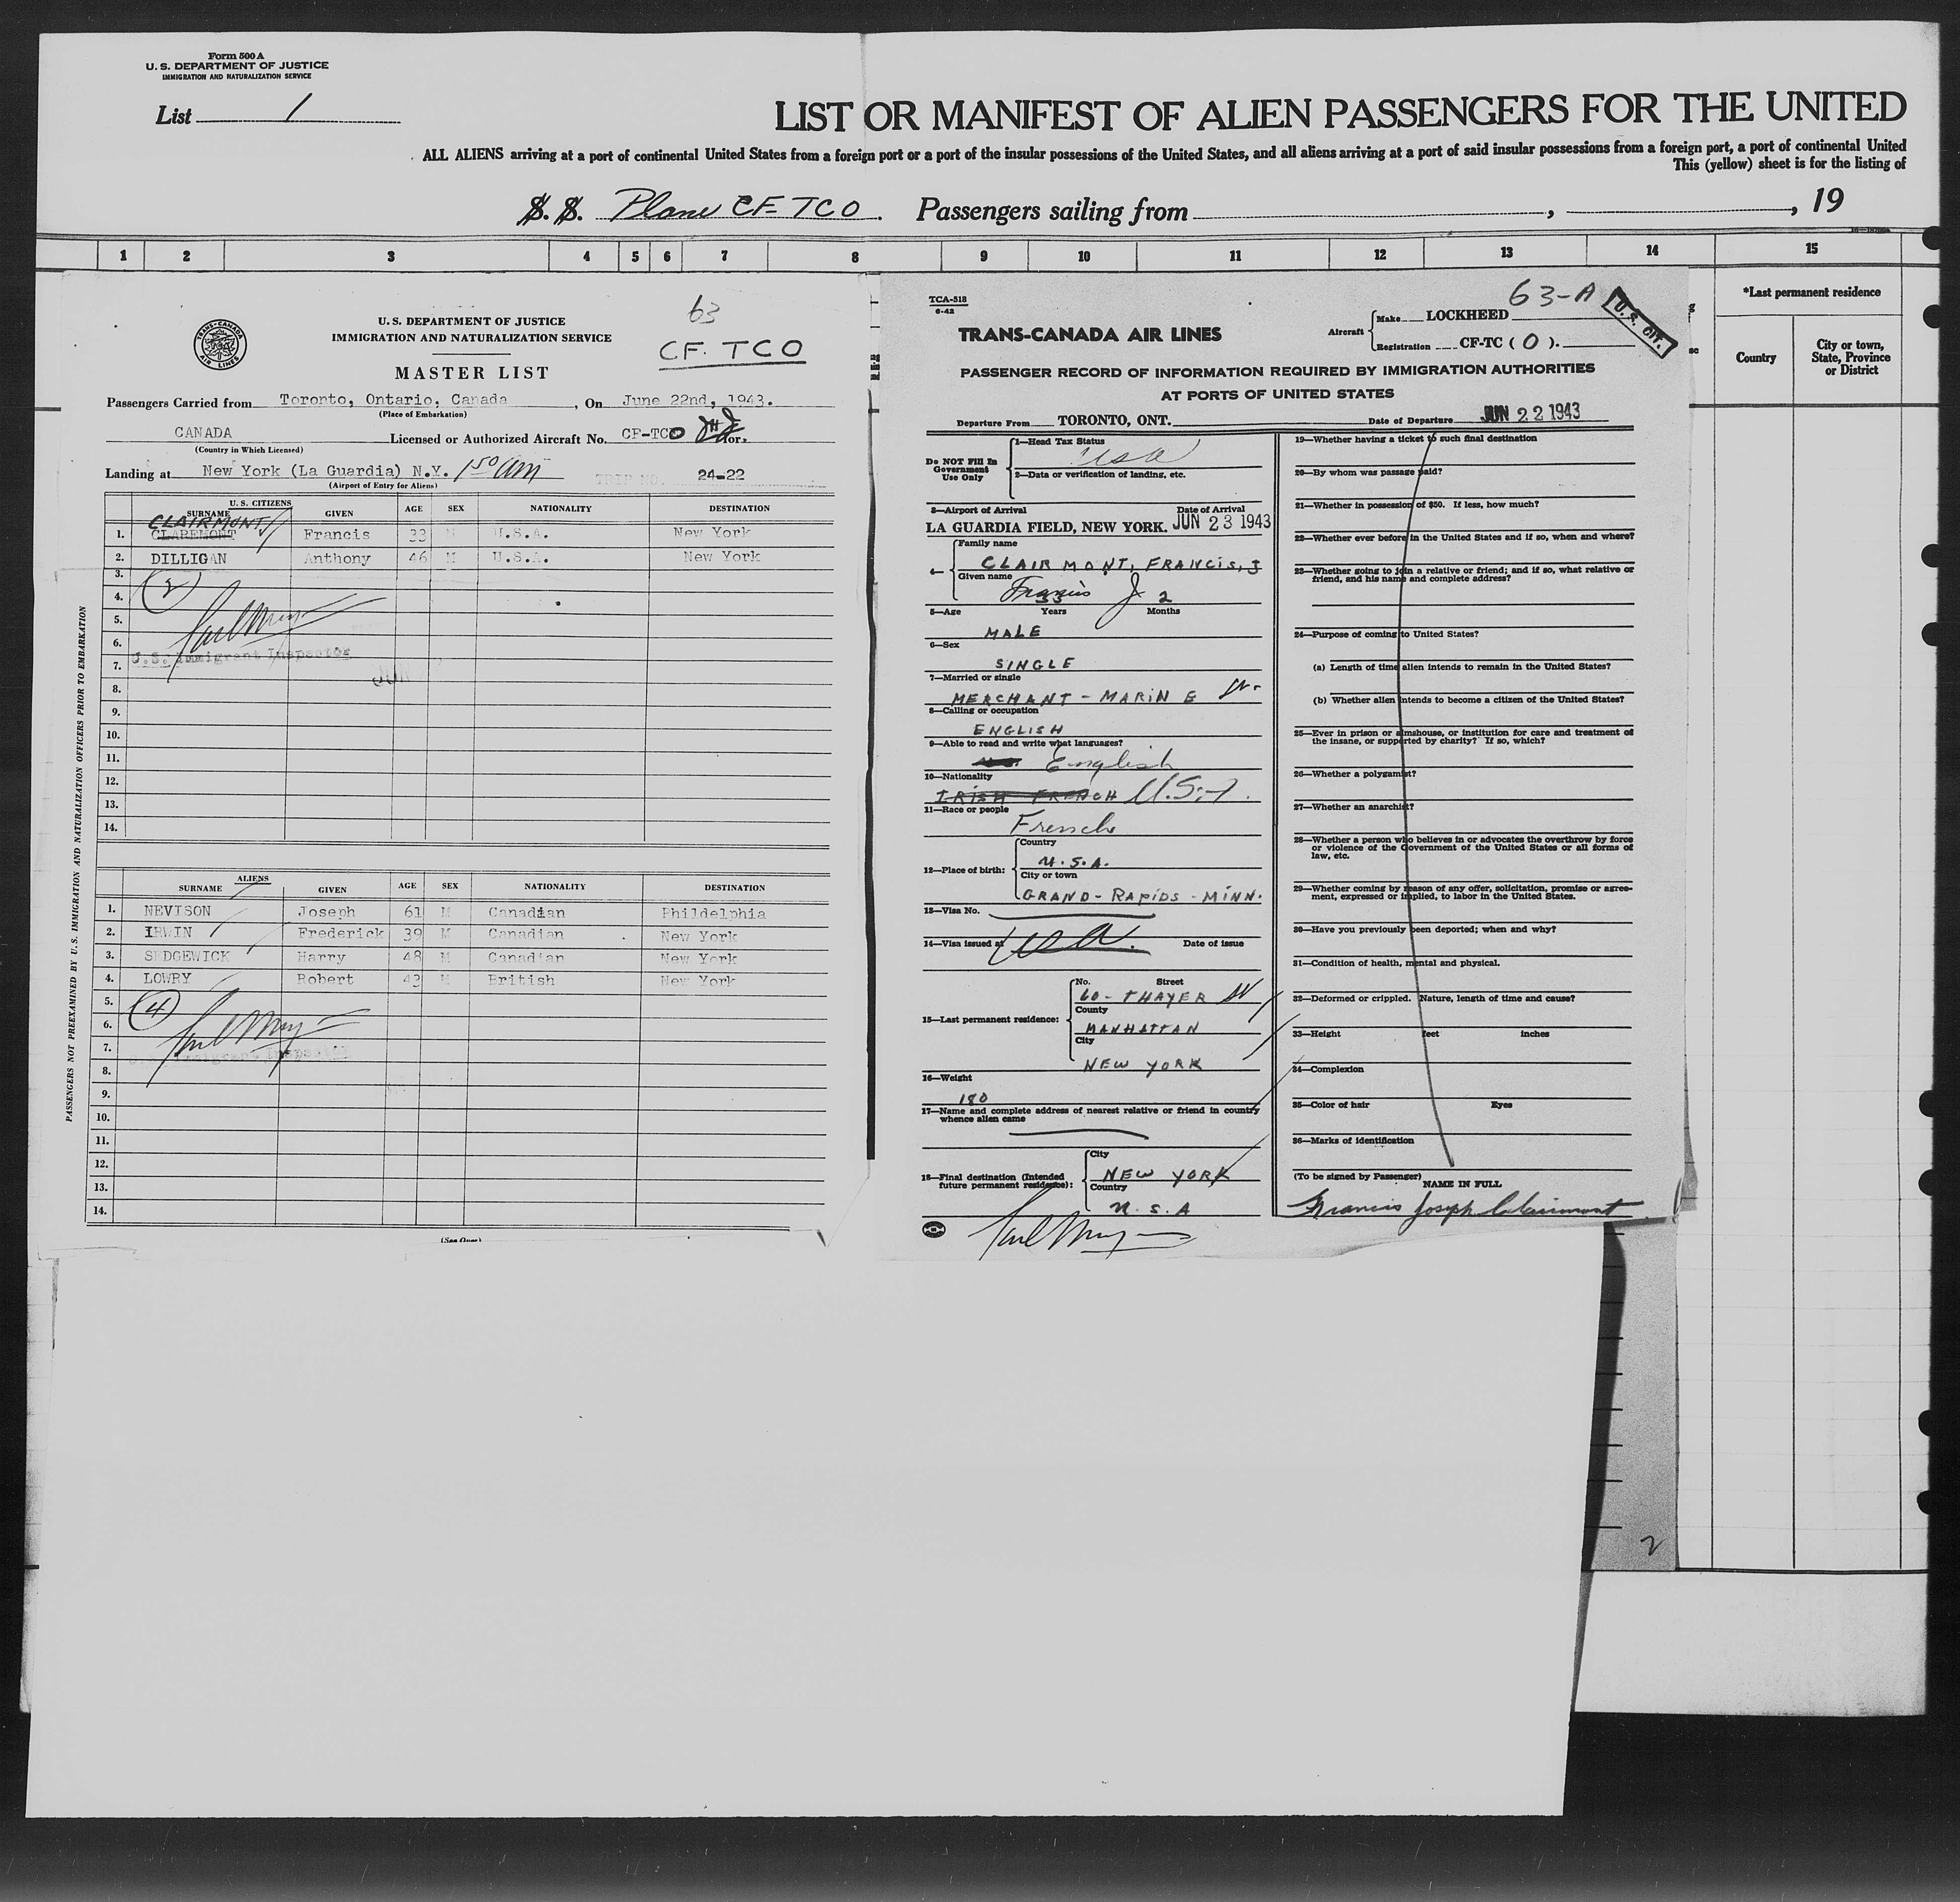 Form 500 A
U. S. DEPARTMENT OF JUSTICE
IMMIGRATION AND NATURALIZATION SERVICE
List 1
LIST OR MANIFEST OF ALIEN PASSENGERS FOR THE UNITED
ALL ALIENS arriving at a port of continental United States from a foreign port or a port of the insular possessions of the United States, and all aliens arriving at a port of said insular possessions from a foreign port, a port of continental United
This (yellow) sheet is for the listing of
S. S. Plane CF-TCO. Passengers sailing from , , 19
1 2 3 4 5 6 7 8 9 10 11 12 13 14 15
*Last permanent residence
Country
City or town, State, Province or District
63
CF. TCO
TRANS-CANADA AIR LINES
U. S. DEPARTMENT OF JUSTICE
IMMIGRATION AND NATURALIZATION SERVICE
MASTER LIST
Passengers Carried from Toronto, Ontario, Canada, On June 22nd, 1943.
(Place of Embarkation)
CANADA Licensed or Authorized Aircraft No. CF-TCO or.
(Country in Which Licensed)
Landing at New York (La Guardia) N.Y. 1 50 am TRIP NO. 24-22
(Airport of Entry for Aliens)
U. S. CITIZENS
SURNAME GIVEN AGE SEX NATIONALITY DESTINATION
CLAIRMONT
1. CLAREMONT Francis 33 M U.S.A. New York
2. DILLIGAN Anthony 46 M U.S.A. New York
3.
(2)
4.
5.
6.
U.S. Immigrant Inspector
7.
JUN
8.
9.
10.
11.
12.
13.
14.
ALIENS
SURNAME GIVEN AGE SEX NATIONALITY DESTINATION
1. NEVISON Joseph 61 M Canadian Phildelphia
2. IRWIN Frederick 39 M Canadian New York
3. SEDGEWICK Harry 48 M Canadian New York
4. LOWRY Robert 43 M British New York
5.
(4)
6.
7.
Immigrant Inspector
8.
9.
10.
11.
12.
13.
14.
(See Over)
PASSENGERS NOT PREEXAMINED BY U. S. IMMIGRATION AND NATURALIZATION OFFICERS PRIOR TO EMBARKATION
TCA-518
6-42
63-A
U. S. CIT.
TRANS-CANADA AIR LINES
Aircraft
Make LOCKHEED
Registration CF-TC ( O ).
PASSENGER RECORD OF INFORMATION REQUIRED BY IMMIGRATION AUTHORITIES
AT PORTS OF UNITED STATES
Departure From TORONTO, ONT. Date of Departure JUN 22 1943
Do NOT Fill In Government Use Only
1—Head Tax Status
usa
2—Data or verification of landing, etc.
3—Airport of Arrival Date of Arrival
LA GUARDIA FIELD, NEW YORK. JUN 23 1943
4—
Family name
CLAIRMONT, FRANCIS, J
Given name
Francis J
33 2
5—Age Years Months
MALE
6—Sex
SINGLE
7—Married or single
MERCHANT-MARINE
8—Calling or occupation
ENGLISH
9—Able to read and write what languages?
English
10—Nationality
IRISH FRENCH U.S.A.
11—Race or people
French
12—Place of birth:
Country
U.S.A.
City or town
GRAND-RAPIDS-MINN.
13—Visa No.
14—Visa issued at Date of issue
15—Last permanent residence:
No. Street
60-THAYER
County
MANHATTAN
City
NEW YORK
16—Weight
180
17—Name and complete address of nearest relative or friend in country whence alien came
18—Final destination (Intended future permanent residence):
City
NEW YORK
Country
U.S.A
19—Whether having a ticket to such final destination
20—By whom was passage paid?
21—Whether in possession of $50. If less, how much?
22—Whether ever before in the United States and if so, when and where?
23—Whether going to join a relative or friend; and if so, what relative or friend, and his name and complete address?
24—Purpose of coming to United States?
(a) Length of time alien intends to remain in the United States?
(b) Whether alien intends to become a citizen of the United States?
25—Ever in prison or almshouse, or institution for care and treatment of the insane, or supported by charity? If so, which?
26—Whether a polygamist?
27—Whether an anarchist?
28—Whether a person who believes in or advocates the overthrow by force or violence of the Government of the United States or all forms of law, etc.
29—Whether coming by reason of any offer, solicitation, promise or agreement, expressed or implied, to labor in the United States.
30—Have you previously been deported; when and why?
31—Condition of health, mental and physical.
32—Deformed or crippled. Nature, length of time and cause?
33—Height feet inches
34—Complexion
35—Color of hair Eyes
36—Marks of identification
(To be signed by Passenger)
NAME IN FULL
Francis Joseph Clairmont
2